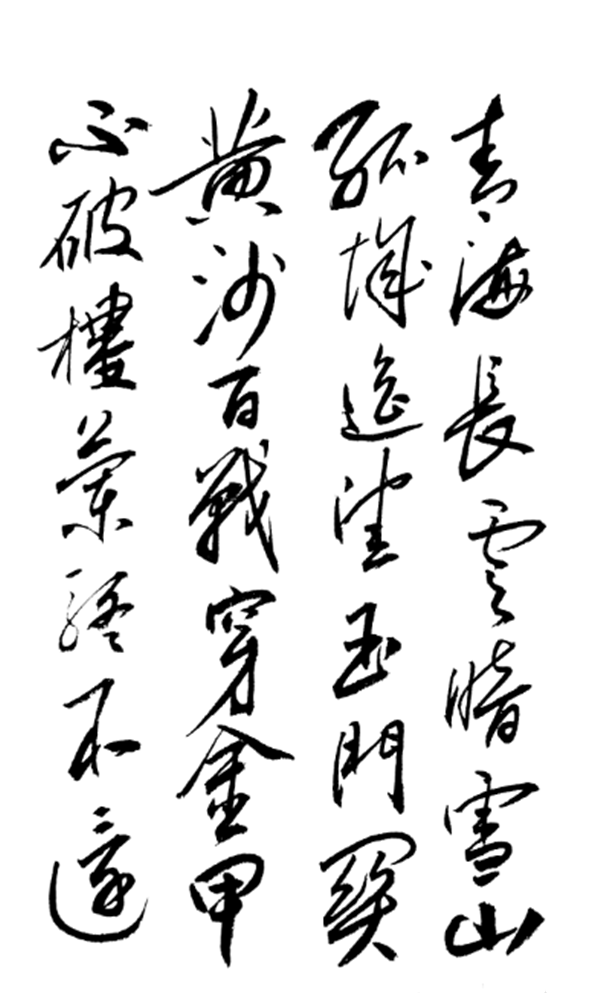 青海長雲暗雪山
孤城遙望玉門關
黄沙百戰穿金甲
不破樓蘭終不還